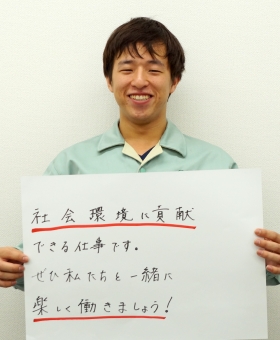 社会環境に貢献
できる仕事です。
ぜひ私たちと一緒に
楽しく働きましょう!